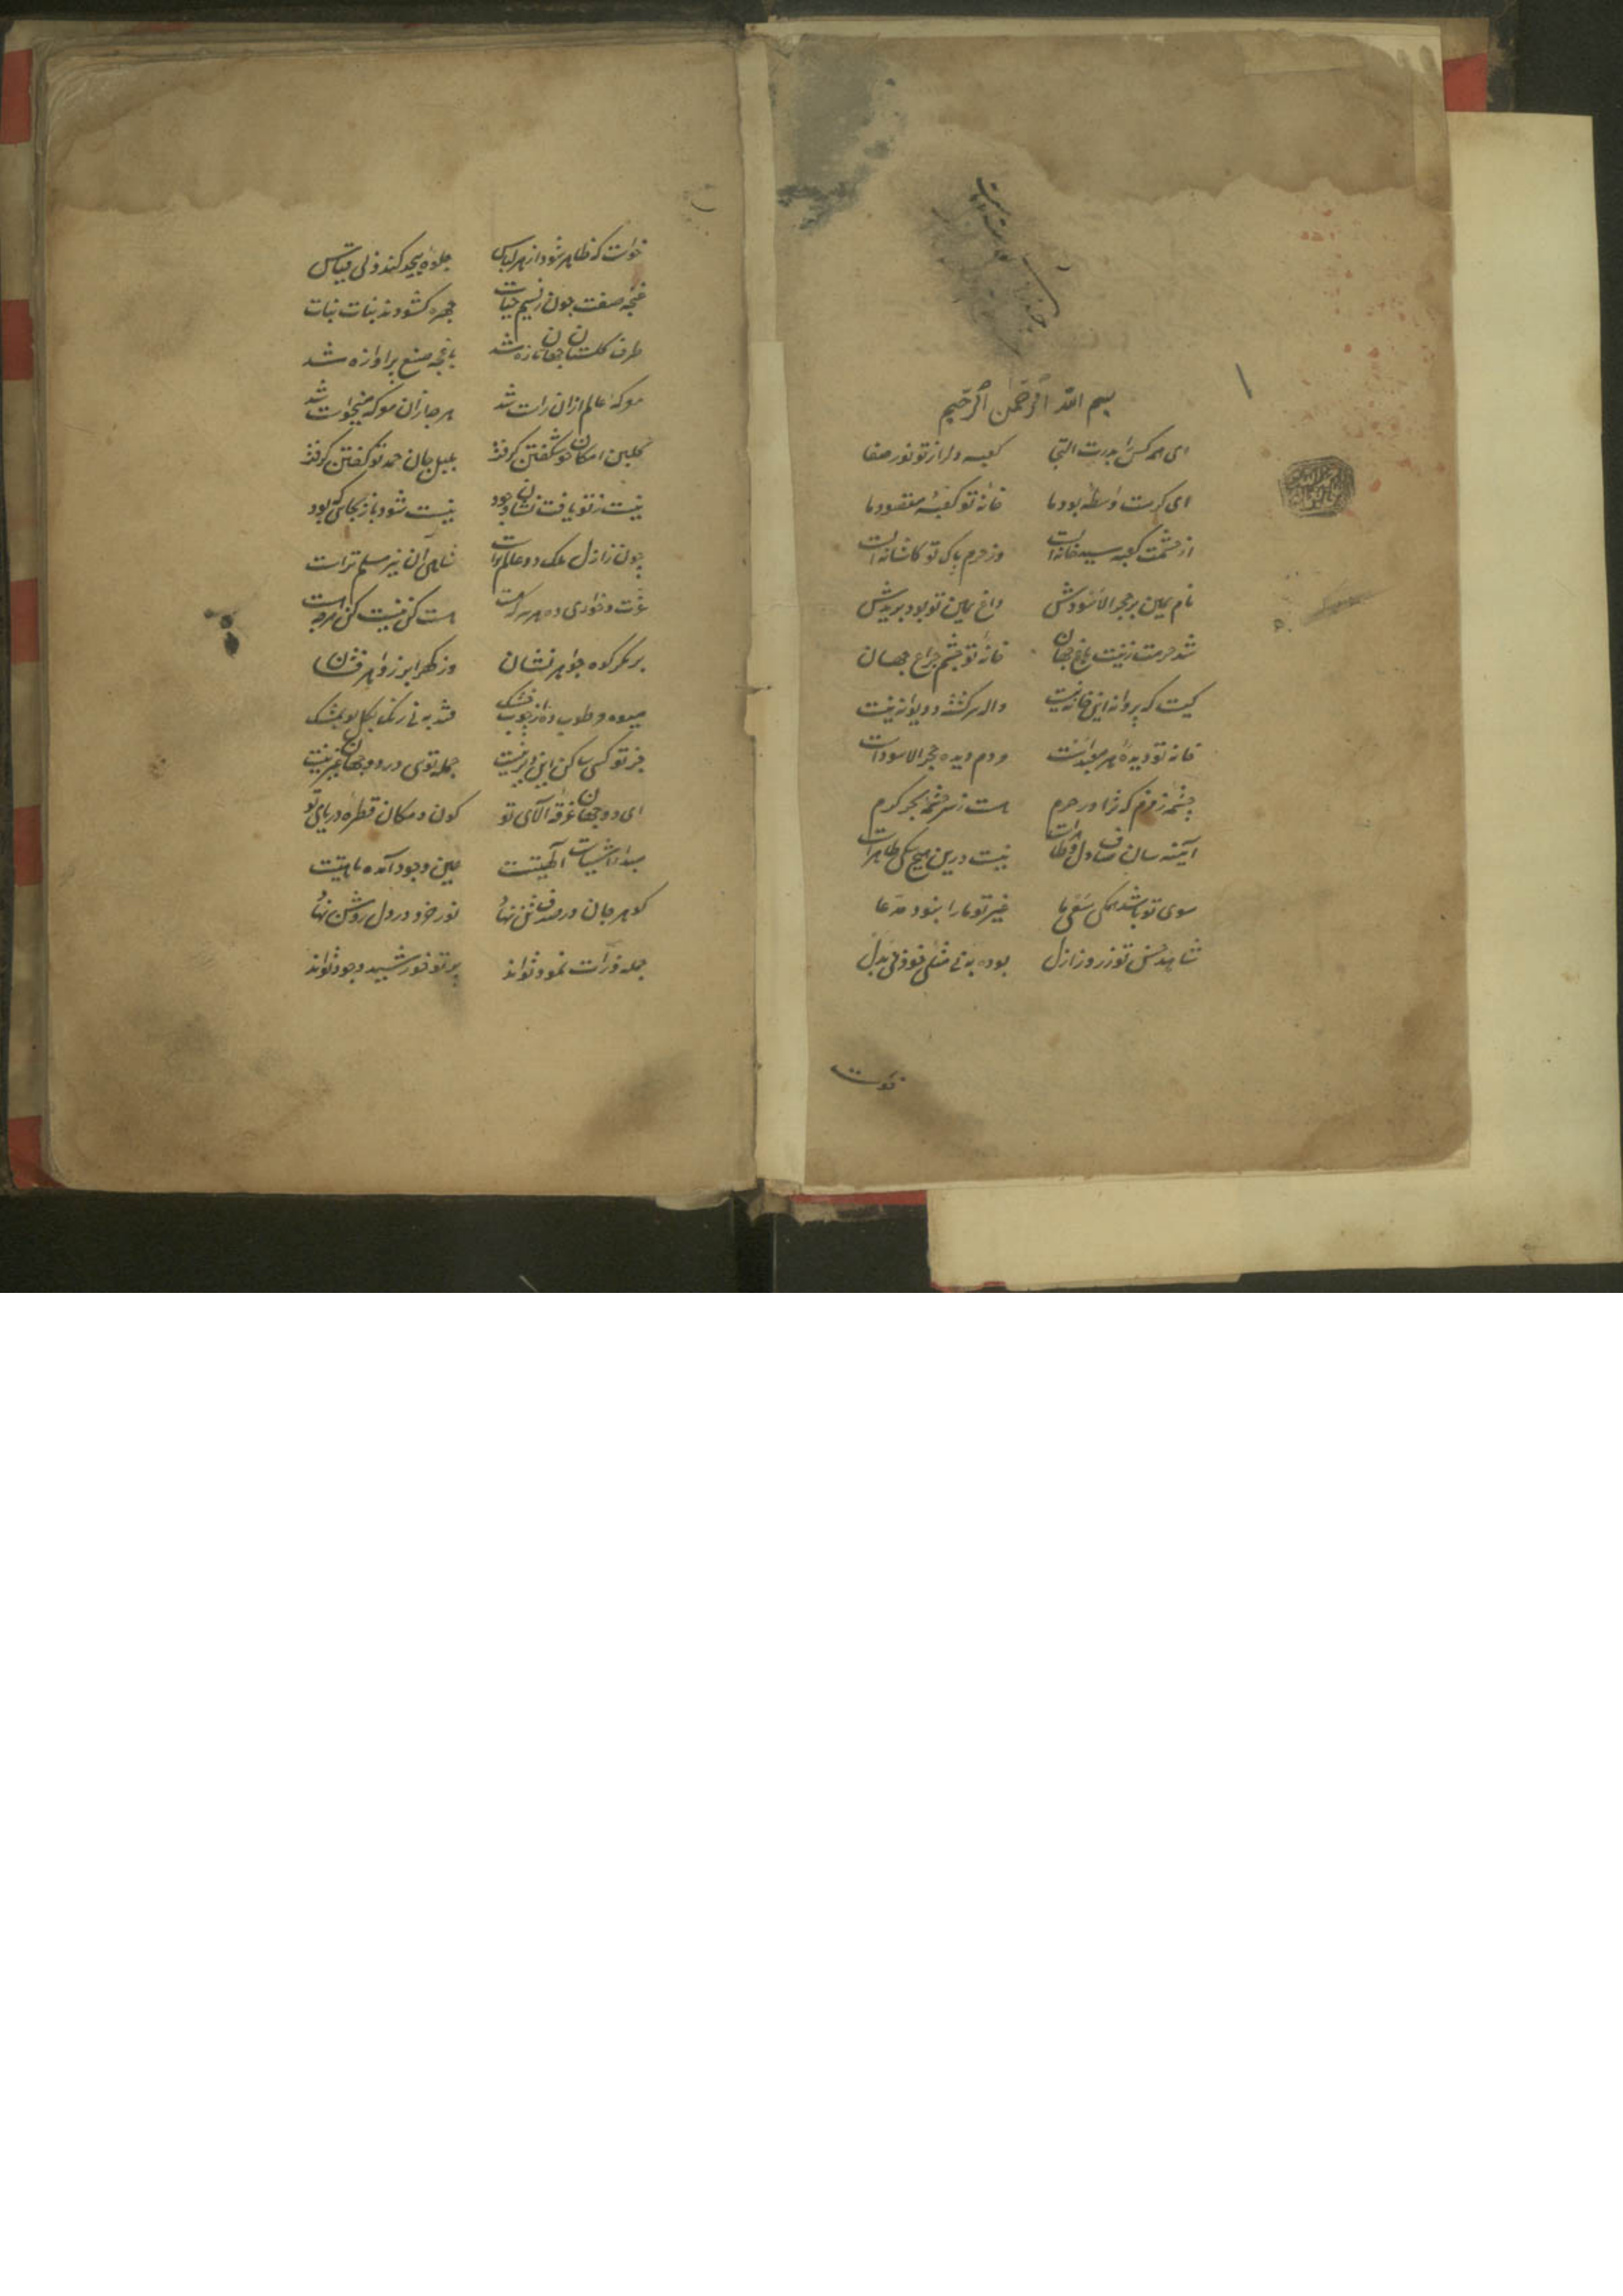 بسم الله الرحمن الرحیم
ای همه کس را بدرت التجا کعبه دلرا ز تو نور صفا
ای کرمت واسطه بود ما خانه تو کعبه مقصود ما
از حشمت کعبه سیه خانه ایست وز حرم پاک تو کاشانه ایست
نام یمین بر حجر الاسودش داغ یمین تو بود بر یدش
شد حرمت زینت باغ جهان خانه تو چشم چراغ جهان
کیست که پروانه این خانه نیست واله سرکشته و دیوانه نیست
خانه تو دیده هر مردم دیده حجر الاسود است
چشمه زمزم که تراود حرم هست ز سرچشمه بحر کرم
آینه سان صاف دل نیست درین هیچ شکی ظاهر است
سوی تو باشد همکی سعی ما غیر تو ما را نبود مدعا
شاهد حسن تو ز روز ازل بوده به بی مثلی خود بی بدل
خواست
خواست که ظاهر شود از هر لباس جلوه بیحد کند و بی قیاس
غنچه صفت چون ز نسیم حیات چهره کشودند بنات نبات
طرف کلستان جهان تازه شد باغچه صنع پر اوازه شد
موکه عالم ازان راست شد هر چه ازان موکه میخواست شد
کلبن امکان چو شکفتن کرفت بلبل جان حمد تو کفتن کرفت
نیست ز تو یافت نشان وجود نیست شود باز بجائی که بود
چون ز ازل ملک دو عالم تراست شاهی آن نیز مسلم تراست
عزت و خواری ده هر هست کن و نیست کن هرچه هست
بر کمر کوه جواهر نشان وز کهر ابر زواهر فشان
میوه مرطوب ده از چوب خشک
جز تو کسی ساکن این دیر نیست جمله توی در دو جهان غیر نیست
ای دو جهان غرقه آلای تو کون و مکان قطره دریای تو
مبداء اشیاست آلهیتت عین وجود آمده ماهیتت
کوهر جان در صدف تن نهاد نور خرد در دل روشن نهاد
جمله ذرات نمود تواند پرتو خورشید وجود تواند